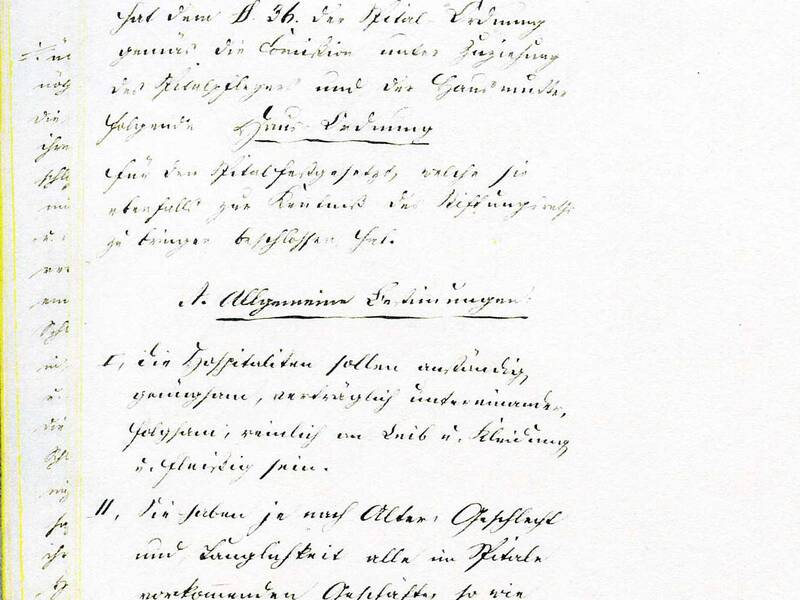 hat dem §. 36. der Spital-Ordnung
gemäs die Comission unter Zuziehung
des Spitalpflegers und der Hausmutter
folgende Haus-Ordnung
für den Spital festgesetzt, welche sie
ebenfalls zur Kentniß des Stiftungsraths
zu bringen beschlossen hat.
A. Allgemeine Bestimungen.
I, die Hospitaliten sollen anständig,
genügsam, verträglich untereinander,
folgsam, reinlich an Leib u. Kleidung
u. fleisig sein.
II, Sie haben je nach Alter, Geschlecht
und Tauglichkeit alle im Spitale
vorkommenden Geschäfte, so wie